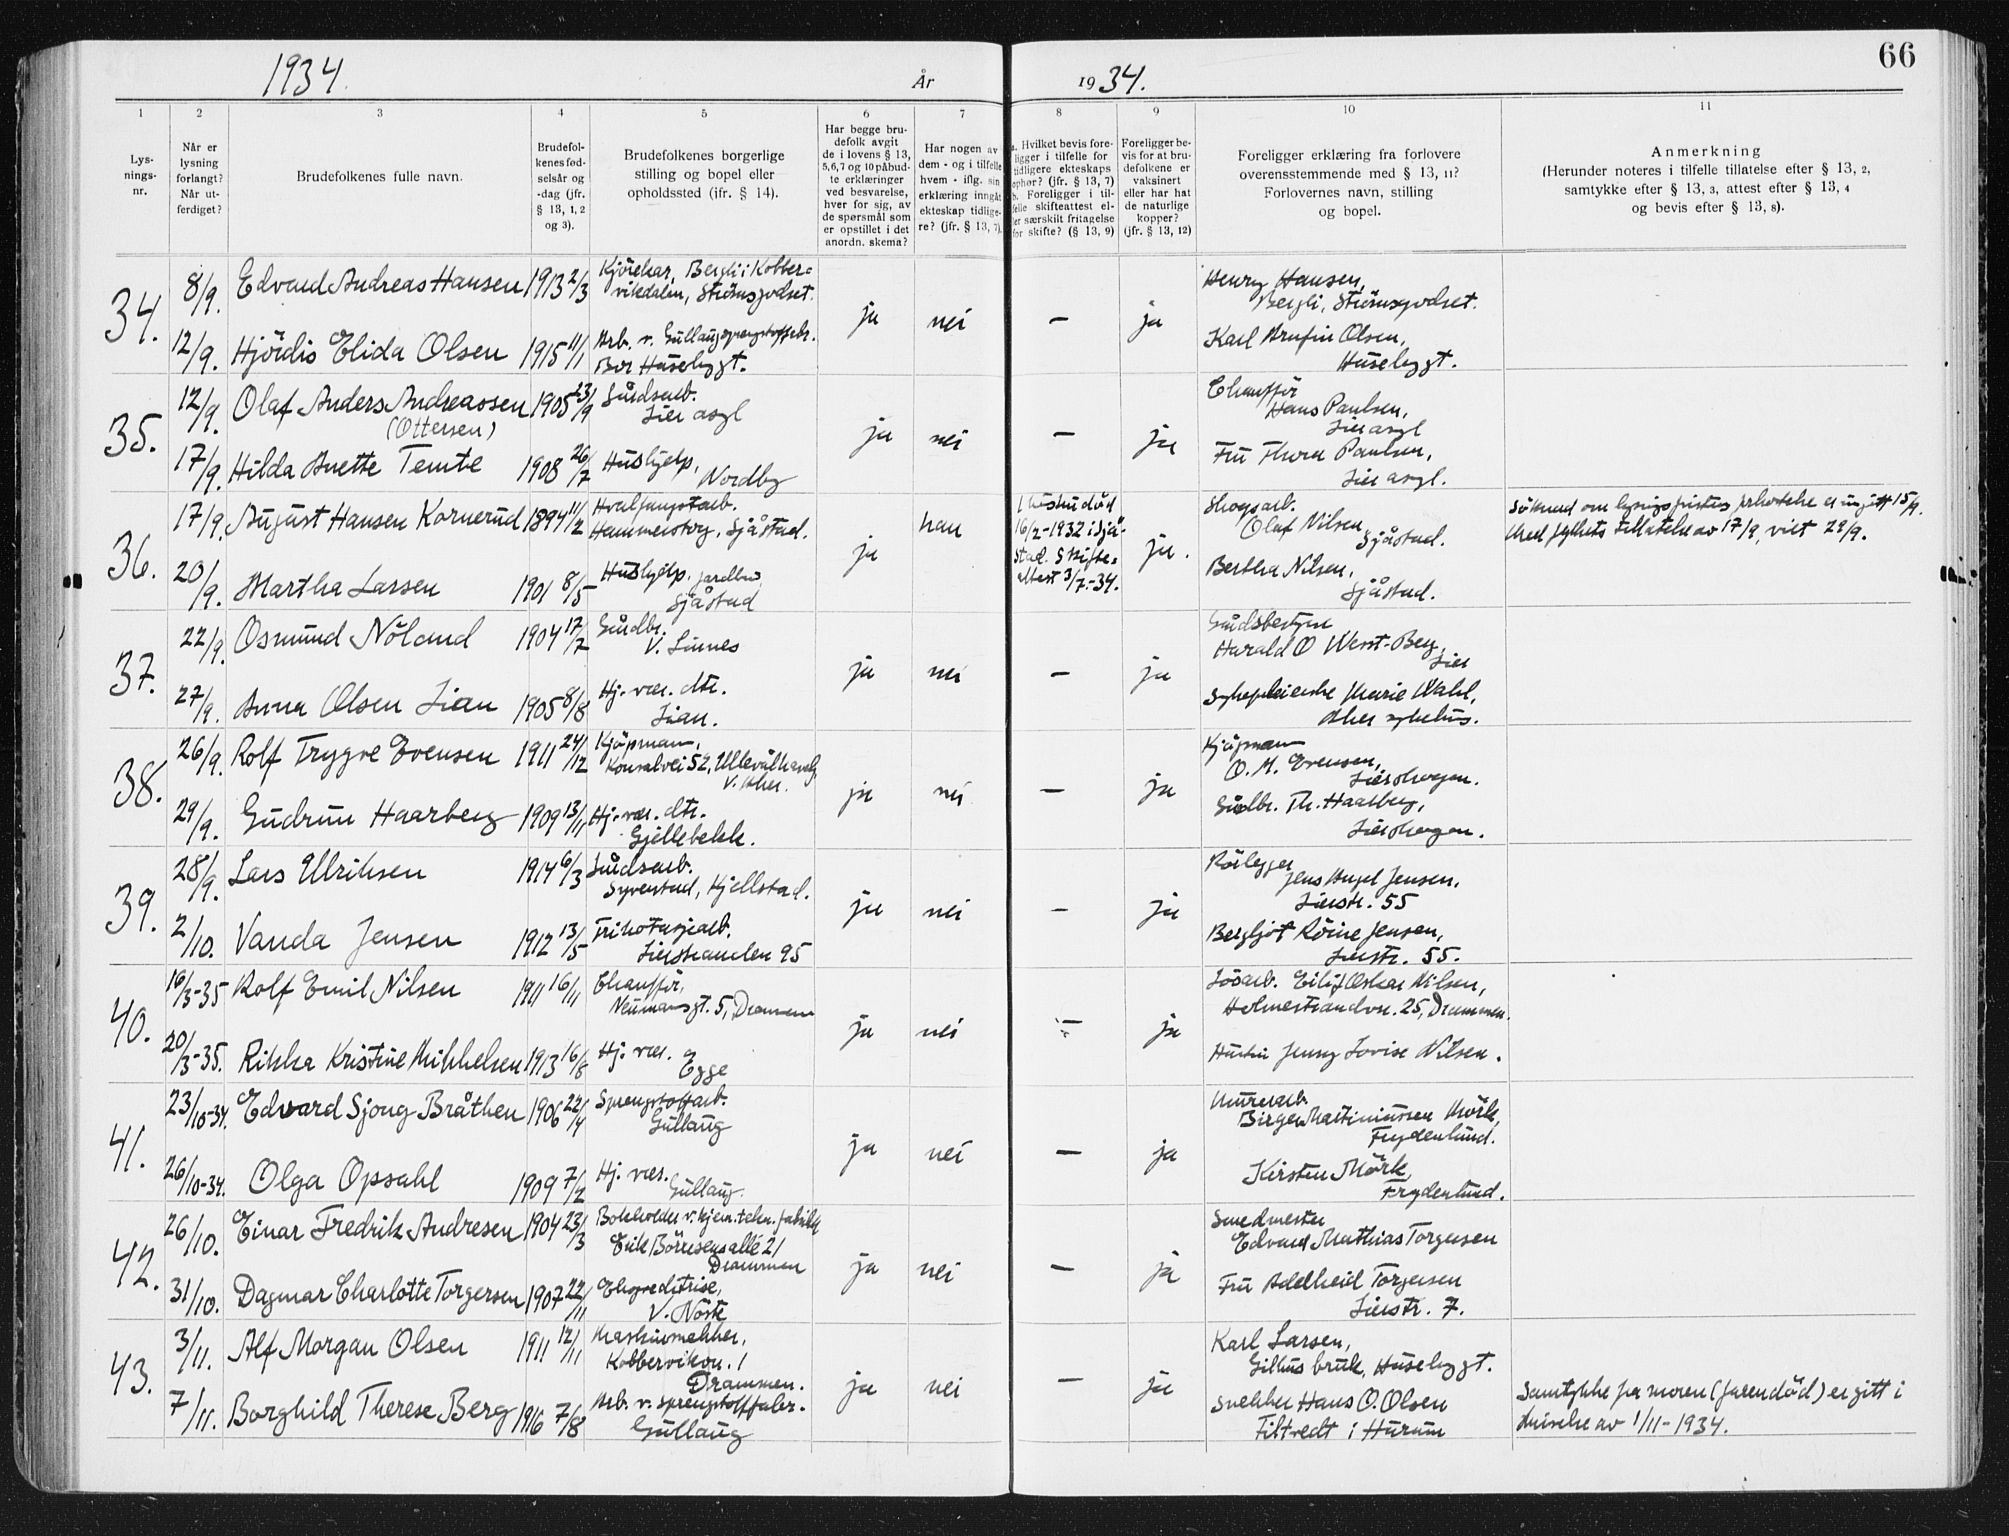 1934. År 1934. 66
1 2 3 4 5 6 7 8 9 10 11
Lys-
nings-
nr.
Når er
lysning
forlangt?
Når ut-
ferdiget?
Brudefolkenes fulle navn.
Brudefol-
kenes fød-
selsår og
-dag (jfr.
§ 13, 1, 2
og 3).
Brudefolkenes borgerlige
stilling og bopel eller
opholdssted (ifr. § 14).
Har begge bru-
defolk avgit
de i lovens § 13,
5, 6, 7 og 10 påbud-
te erklæringer
ved besvarelse,
hver for sig, av
de spørsmål som
er opstillet i det
anordn. skema?
Har nogen av
dem - og i tilfelle
hvem - iflg. sin
erklæring inngåt
ekteskap tidlige-
re? (jfr. § 13, 7).
a. Hvilket bevis fore-
ligger i tilfelle for
tidligere ekteskaps
ophør? (jfr. § 13, 7)
b. Foreligger i til-
felle skifteattest el-
ler særskilt fritagelse
for skifte? (§ 13, 9)
Foreligger be-
vis for at bru-
defolkene er
vaksinert
eller har hat
de naturlige
kopper?
(jfr. § 13, 12)
Foreligger erklæring fra forlovere
overensstemmende med § 13, 11?
Forlovernes navn, stilling
og bopel.
Anmerkning
(Herunder noteres i tilfelle tillatelse efter § 13, 2,
samtykke efter § 13, 3, attest efter § 13, 4
og bevis efter § 13, 8).
34.
8/9. Edvard Andreas Hansen 1913 2/3 Kjørekar, Bergli i Kobber=
vikdalen, Strömsgodset.
ja nei — ja
Henry Hansen,
Bergli, Strömsgodset.
12/9. Hjördis Elida Olsen 1915 11/1 Arb. v. Gullaug
Bor Husebygt.
Karl Arnfin Olsen,
Husebygt.
35.
12/9. Olaf Anders Andreassen 1905 23/9 Gårdsarb.
(Ottersen) Lier asyl
ja nei — ja
Chaufför
Hans Paulsen,
Lier asyl
17/9. Hilda Anette Temte 1908 26/7 Hushjelp,
Nordby
Fru Thora Paulsen,
Lier asyl.
36.
17/9. August Hansen Kornerud 1894 11/2 Hvalfangstarb.
Hammersberg, Sjåstad.
ja han
Hustru död
16/2-1932 i Sjå-
stad. Skifte=
attest 3/7.-34.
ja.
Skogsarb.
Olaf Nilsen,
Sjåstad.
Söknad om lysnings er inngitt 15/9.
Med fylkets tillatelse av 17/9, viet 29/9.
20/9. Martha Larsen 1901 8/5 Hushjelp,
Sjåstad
Bertha Nilsen,
Sjåstad.
37.
22/9. Osmund Nöland 1904 17/7 Gårdbr.
V. Linnes
ja nei — ja
Gårdsbestyrer
Harald O West-Berg,
Lier
27/9. Anna Olsen Lian 1905 8/8 Hj. vær. dtr.
Lian.
Sykepleierske Marie Wahl,
Aker sykehus.
38.
26/9. Rolf Trygve Evensen 1911 24/12 Kjöpman,
Konvalvei 52, Ullevål haveby
V. Aker.
ja nei — ja
Kjöpman
O. M. Evensen,
Lierskogen.
29/9. Gudrun Haarberg 1909 13/11 Hj. vær. dtr.
Gjellebekk.
Gårdbr. Th. Haarberg,
Lierskogen.
39.
28/9. Lars Ulriksen 1914 6/3 Gårdsarb.
Syverstad, Hjellstad.
ja nei — ja
Rörlegger
Jens Angel Jensen,
Lierstr. 55
2/10. Vanda Jensen 1912 13/5 Trikotasjearb.
Lierstranden 95
Bergljot Röine Jensen,
Lierstr. 55.
40.
16/3-35 Rolf Emil Nilsen 1911 16/11 Chaufför,
Neumansgt. 5, Drammen
ja nei — ja
Lösarb. Eilif Oskar Nilsen,
Holmestrandvn. 25, Drammen.
20/3-35. Rikka Kristine Mikkelsen 1913 16/8 Hj. vær.
Egge
Hustru Jenny Lovise Nilsen.
41.
23/10-34. Edvard Sjong Bråthen 1906 22/4 Sprengstoffarb.
Gullaug
ja nei — ja
Murerarb.
Birger Martiniussen Mörk,
Frydenlund.
26/10-34. Olga Opsahl 1909 7/2 Hj. vær.
Gullaug.
Kirsten Mörk,
Frydenlund.
42.
26/10. Einar Fredrik Andresen 1904 23/3 Bokholder v. kjem. tekn. fabrikk
Erik Börresens allé 21
Drammen
ja nei — ja
Smedmester
Edvard Mathias Torgersen
31/10. Dagmar Charlotte Torgersen 1907 22/11 Ekspeditrise,
V. Nöste
Fru Adelheid Torgersen
Lierstr. 7.
43.
3/11. Alf Morgan Olsen 1911 12/11 Maskinsmekker,
Kobbervikvn. 1
Drammen.
ja nei — ja
Karl Larsen,
Gilhus bruk, Husebygt.
7/11. Borghild Therese Berg 1916 7/8 Arb. v. sprengstoffabr.
Gullaug
Snekker Hans O. Olsen
Filtvedt i Hurum
Samtykke fra moren (faren död) er gitt i
skrivelse av 1/11-1934.